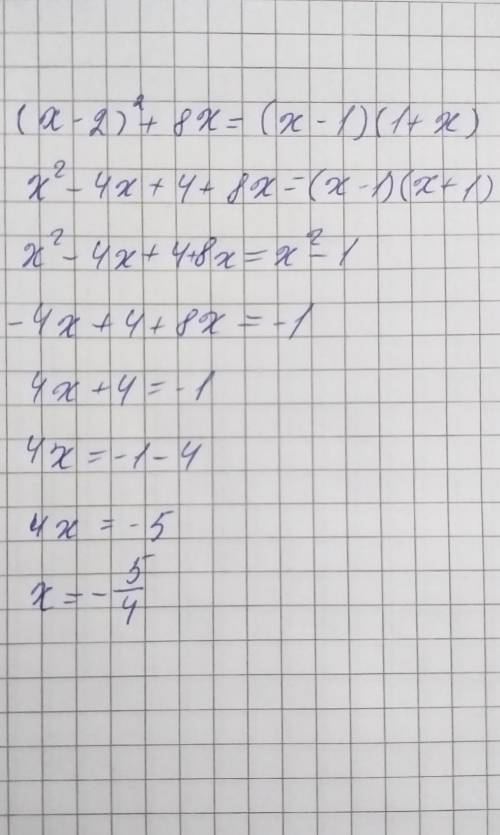 (x-2)²+8x=(x-1)(1+x)
x²-4x+4+8x=(x-1)(x+1)
x²-4x+4+8x=x²-1
-4x+4+8x=-1
4x+4=-1
4x=-1-4
4x=-5
x=-5/4